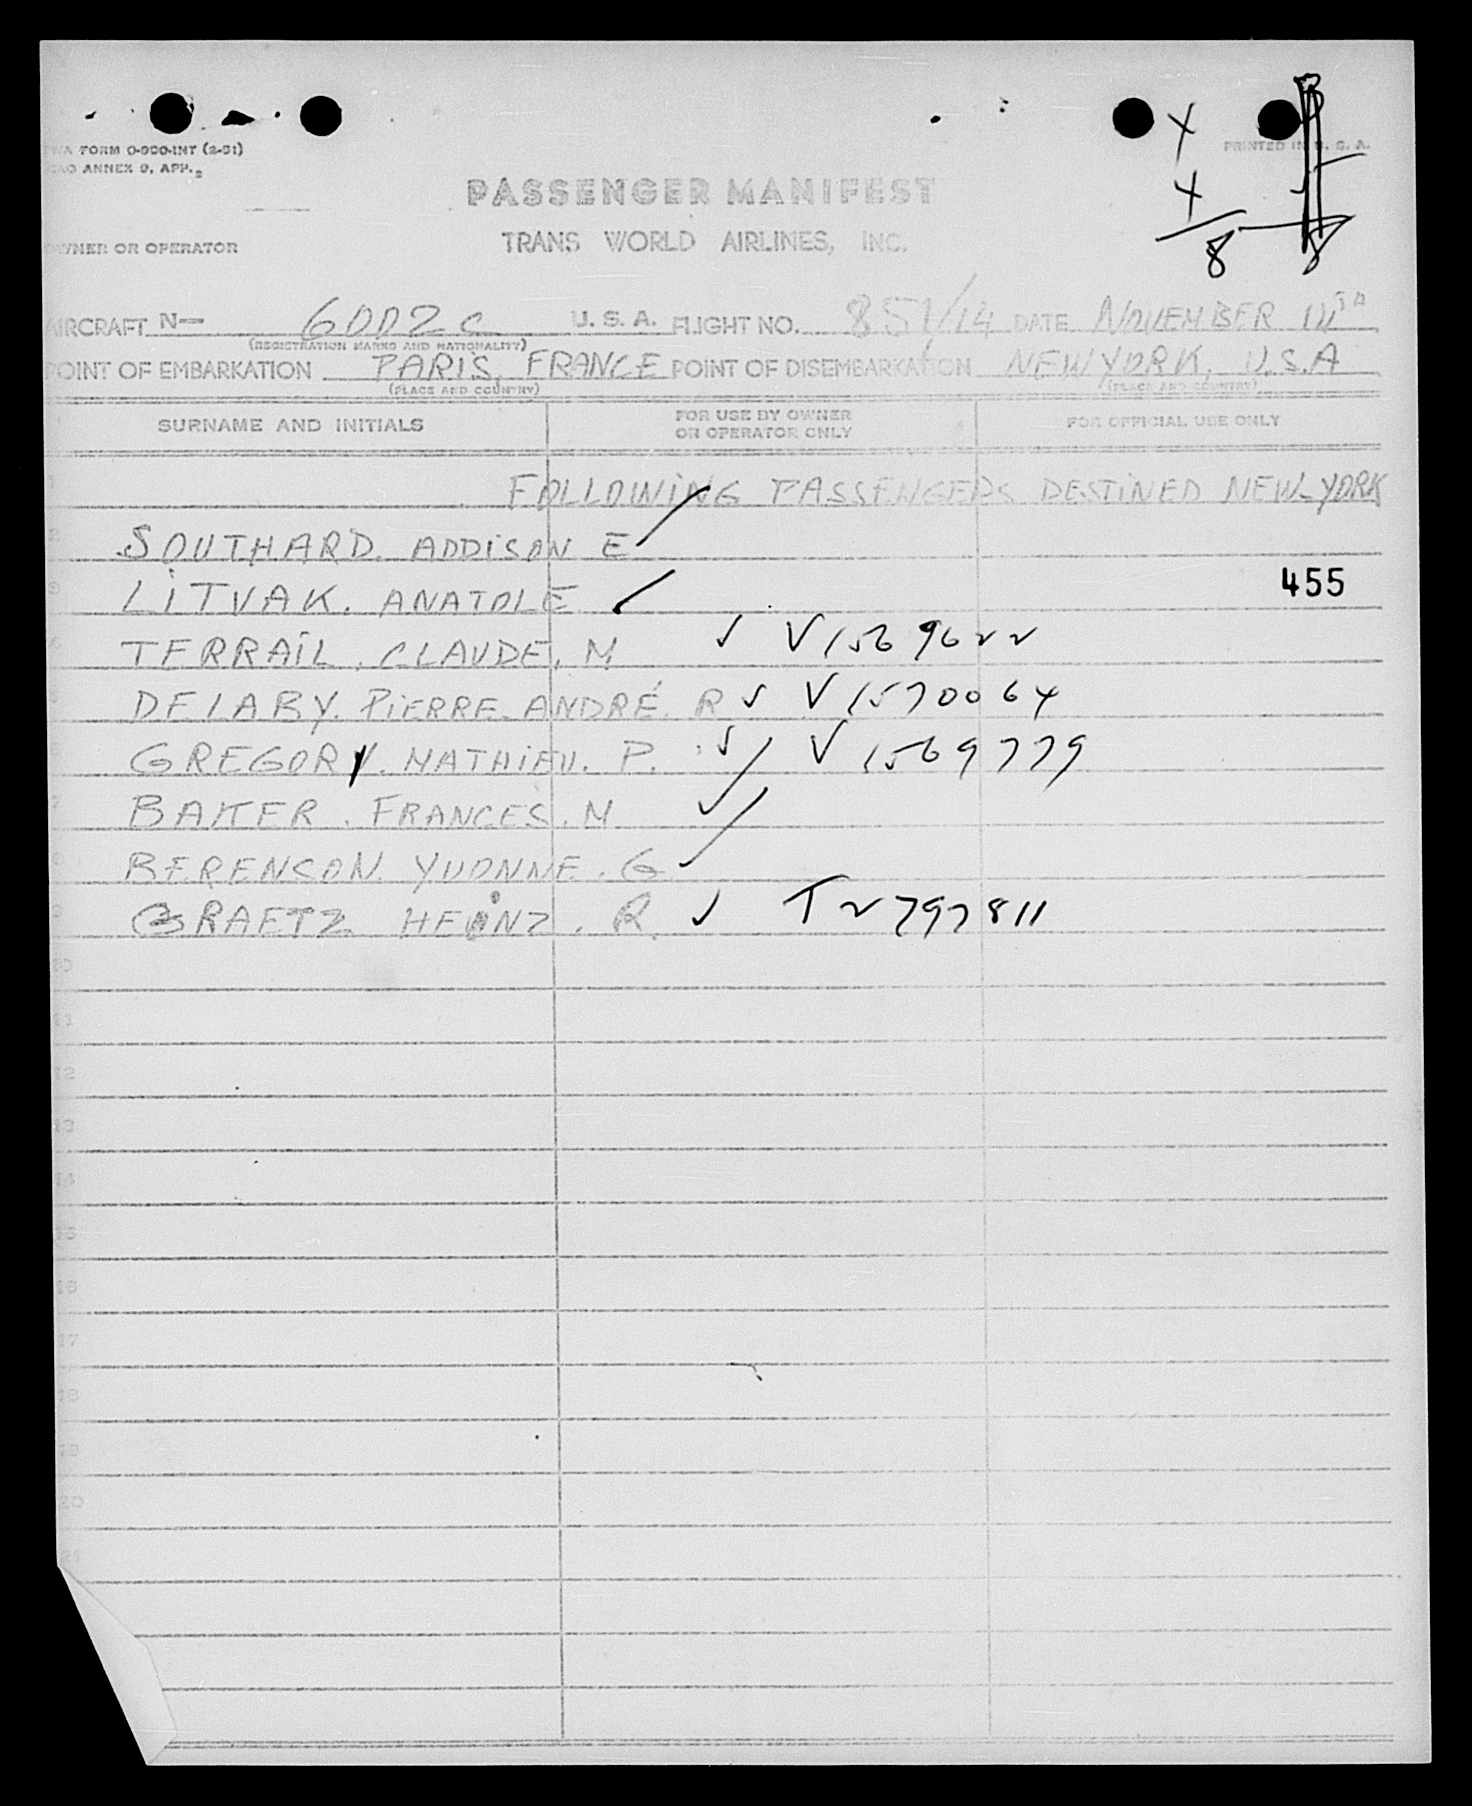 TWA FORM O-900-INT (2-51)
ICAO ANNEX 9, APP. 2
PRINTED IN U. S. A.
4
4
8 8
PASSENGER MANIFEST
OWNER OR OPERATOR TRANS WORLD AIRLINES, INC.
AIRCRAFT N- 6002C U. S. A. FLIGHT NO. 851/14 DATE NOVEMBER 14TH
(REGISTRATION MARKS AND NATIONALITY)
POINT OF EMBARKATION PARIS, FRANCE POINT OF DISEMBARKATION NEW YORK, U.S.A
(PLACE AND COUNTRY) (PLACE AND COUNTRY)
SURNAME AND INITIALS FOR USE BY OWNER OR OPERATOR ONLY FOR OFFICIAL USE ONLY
1 FOLLOWING PASSENGERS DESTINED NEW-YORK
2 SOUTHARD. ADDISON E
3 LITVAK. ANATOLE 455
4 TERRAIL. CLAUDE. M V1569622
5 DELABY. PIERRE. ANDRÉ. R V1570064
6 GREGORY. MATHIEU. P. V1569779
7 BAKER. FRANCES. M
8 BERENSON. YVONNE. G
9 GRAETZ. HEINZ. R. T2797811
10
11
12
13
14
15
16
17
18
19
20
21